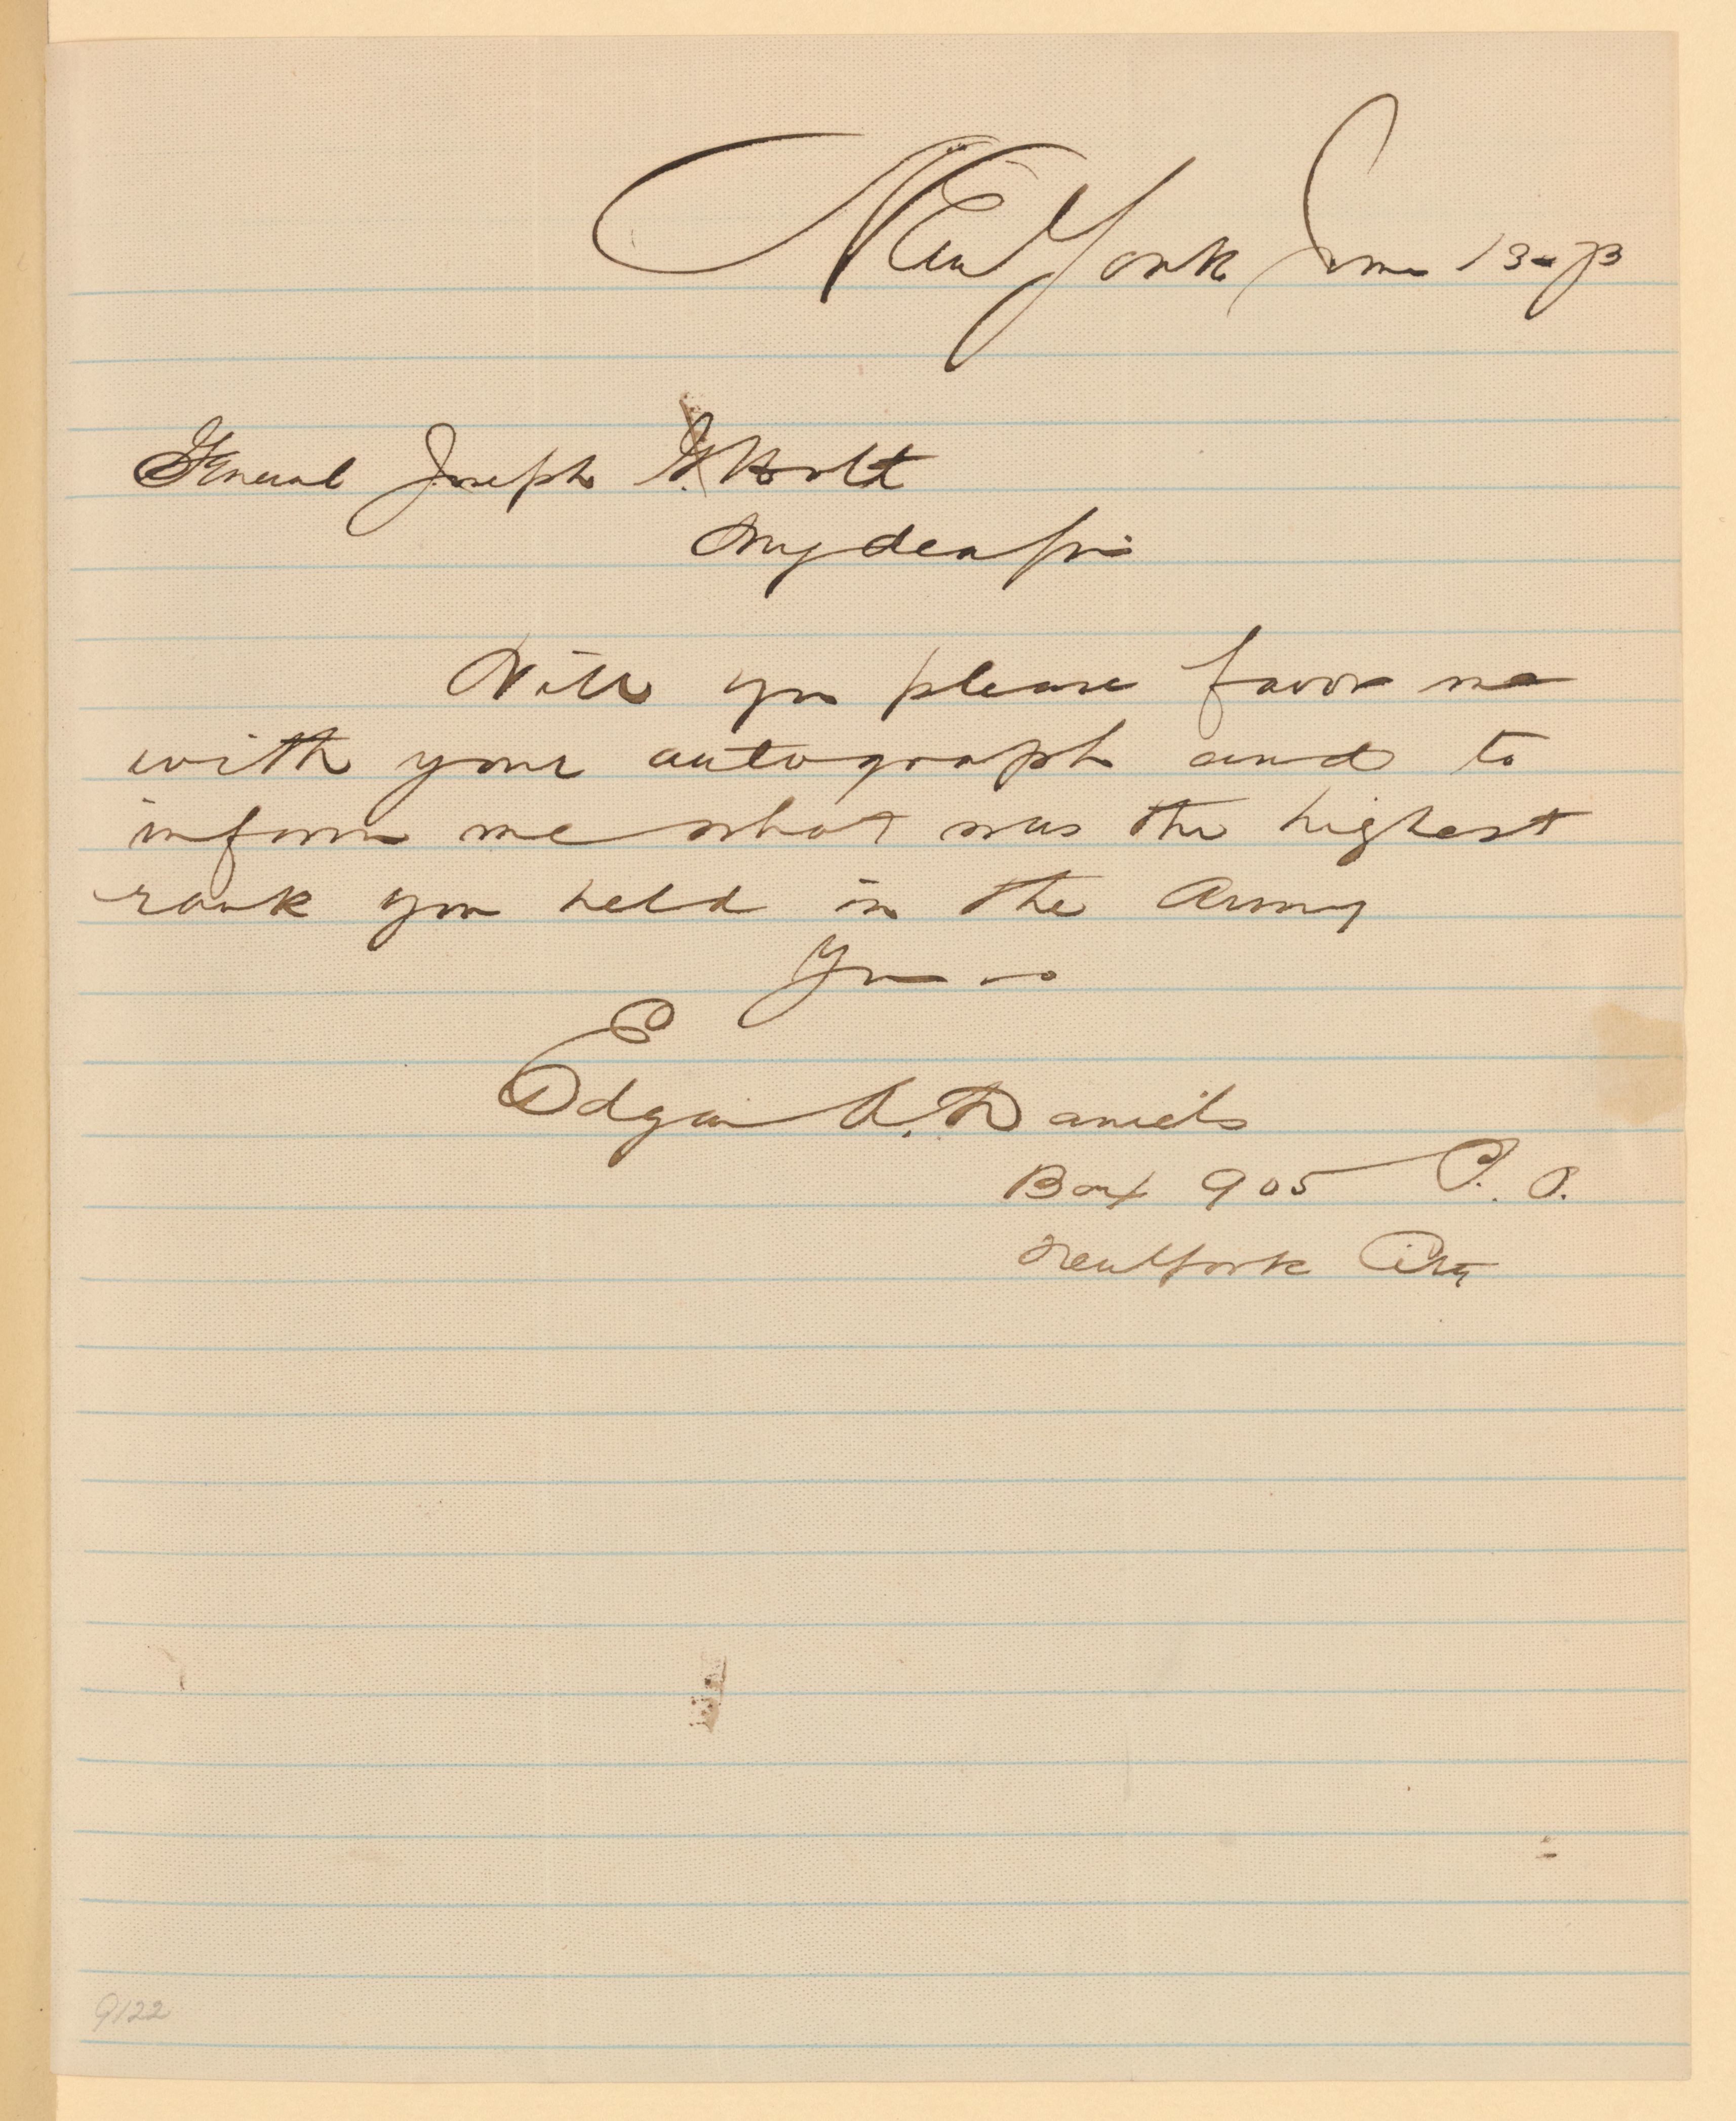 New York June 13-73
General Joseph Holt
My dear Sir
Will you please favor me
with your autograph and to
inform me what was the highest
rank you held in the Army
Edgar A. Daniels
Box 905 P. O.
New York City
9122